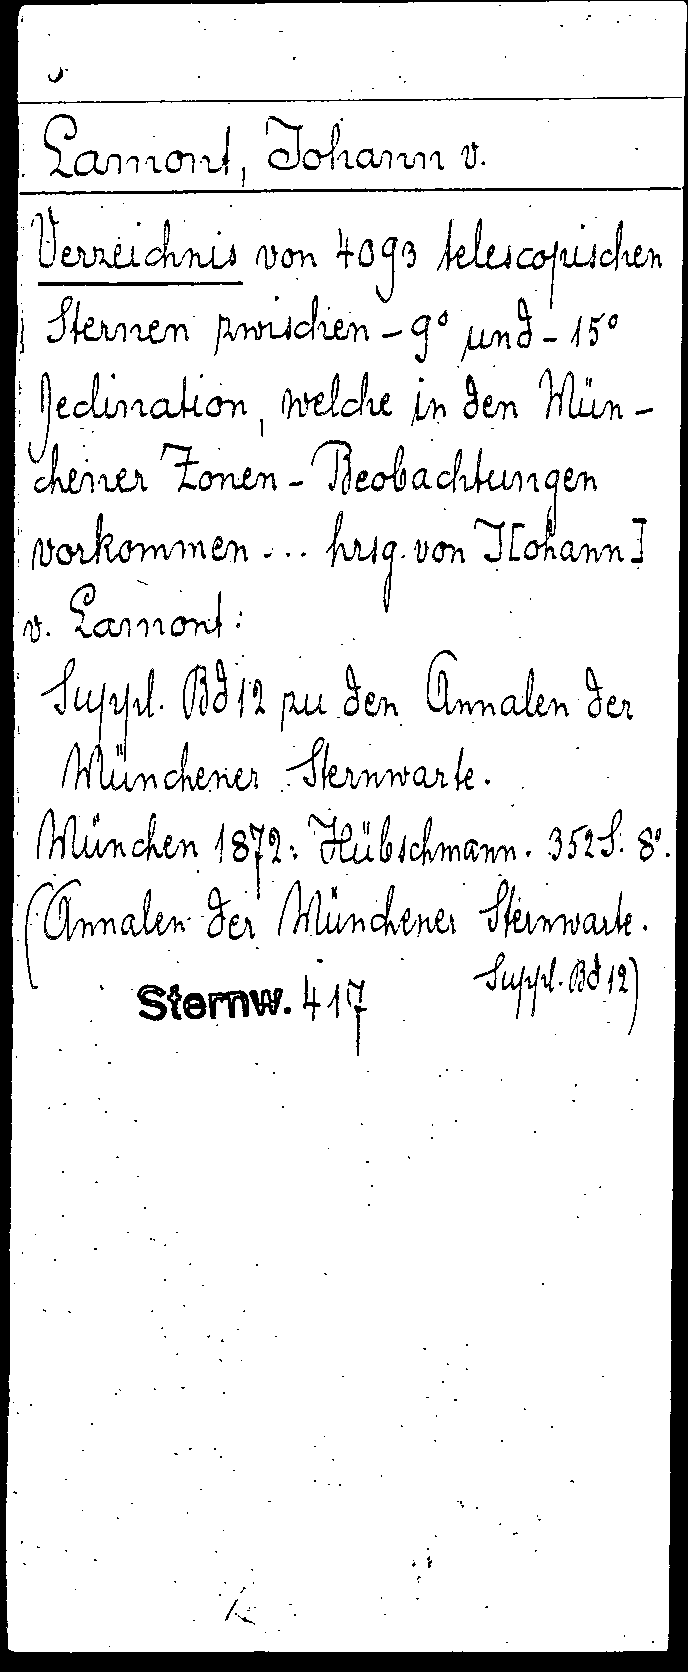 Lamont, Johann v.
Verzeichnis von 4093 telescopischen
Sternen zwischen -9° und -15°
Declination, welche in den Mün-
chener Zonen-Beobachtungen
vorkommen... hrsg. von J[ohann]
v. Lamont:
Suppl. Bd 12 zu den Annalen der
Münchener Sternwarte.
München 1872: Hübschmann. 352 S. 8°.
(Annalen der Münchener Sternwarte.
Suppl. Bd 12)
Sternw. 417